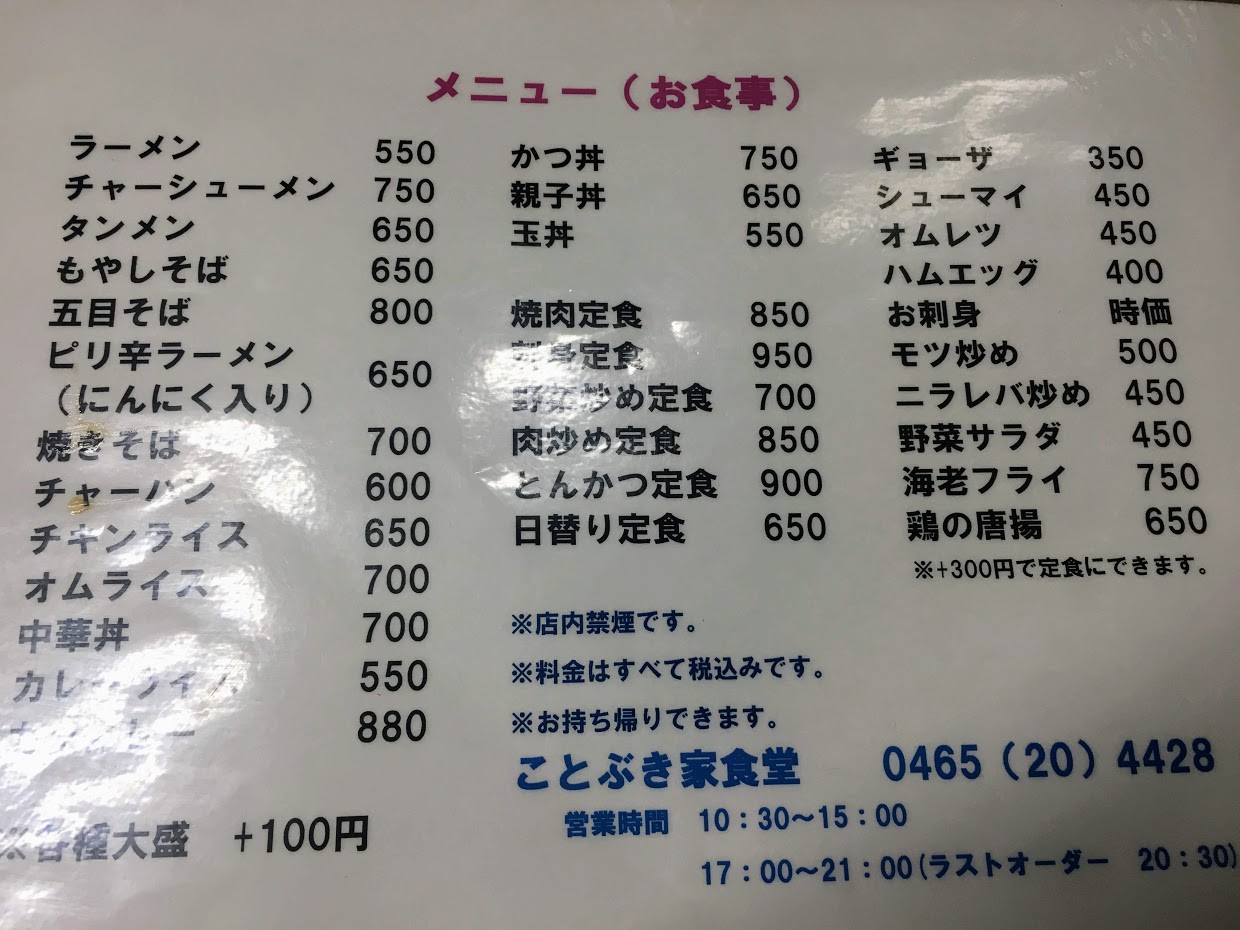 メニュー（お食事）
ラーメン 550
チャーシューメン 750
タンメン 650
もやしそば 650
五目そば 800
ピリ辛ラーメン
（にんにく入り） 650
焼きそば 700
チャーハン 600
チキンライス 650
オムライス 700
中華丼 700
カレーライス 550
880
※各種大盛 +100円
かつ丼 750
親子丼 650
玉丼 550
焼肉定食 850
刺身定食 950
野菜炒め定食 700
肉炒め定食 850
とんかつ定食 900
日替り定食 650
ギョーザ 350
シューマイ 450
オムレツ 450
ハムエッグ 400
お刺身 時価
モツ炒め 500
ニラレバ炒め 450
野菜サラダ 450
海老フライ 750
鶏の唐揚 650
※+300円で定食にできます。
※店内禁煙です。
※料金はすべて税込みです。
※お持ち帰りできます。
ことぶき家食堂 0465（20）4428
営業時間 10：30～15：00
17：00～21：00(ラストオーダー 20：30)